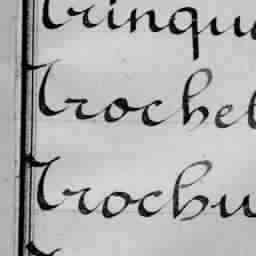 Trinqu
Trochel
Trochu